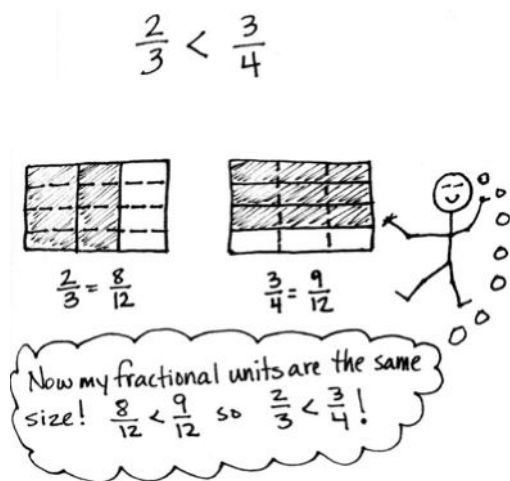 2/3 < 3/4
2/3 = 8/12
3/4 = 9/12
Now my fractional units are the same
size! 8/12 < 9/12 so 2/3 < 3/4!